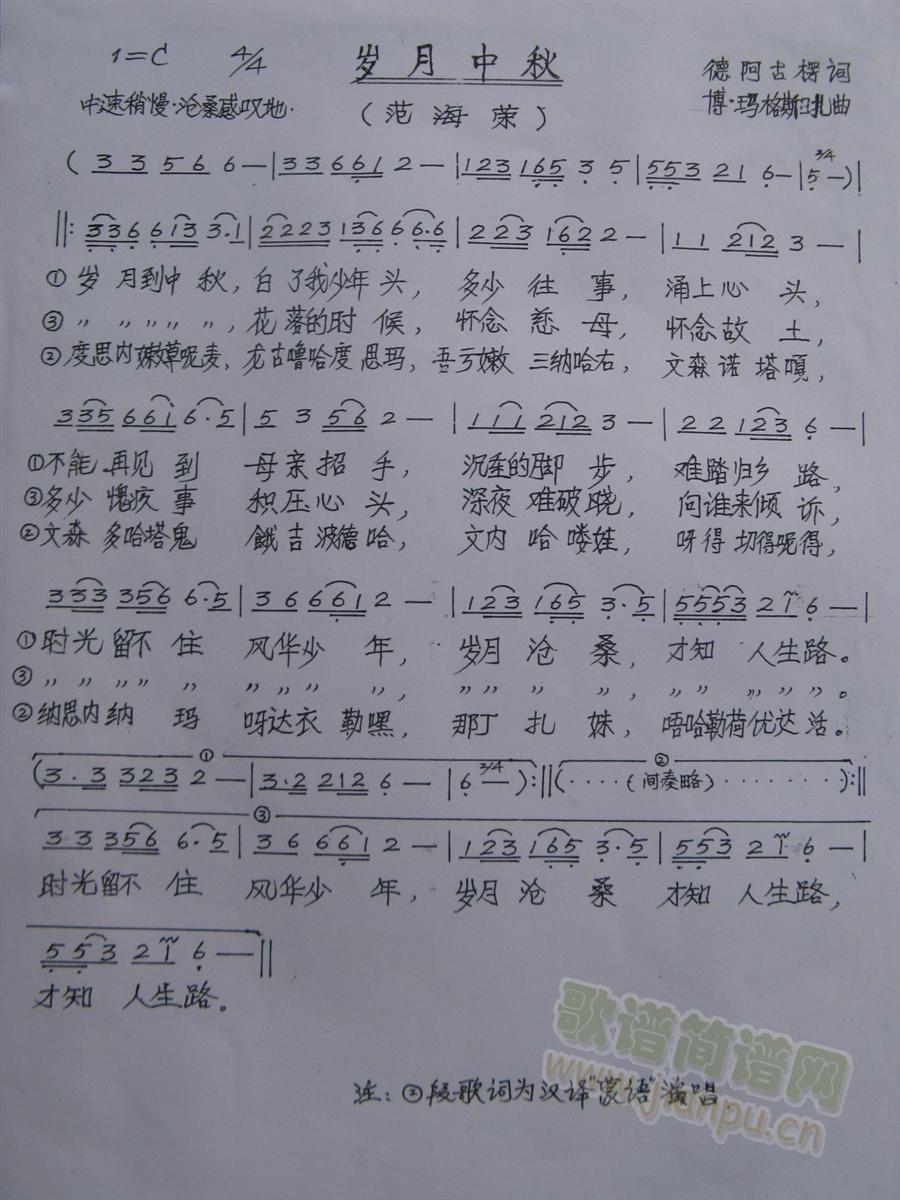 1=C 4/4 岁月中秋 德阿古楞词
中速稍慢·沧桑感叹地· (范海荣) 博·玛格斯尔扎曲
( 3 3 5 6 6 — | 3 3 6 6 1 2 — | 1 2 3 1 6 5 3 5 | 5 5 3 2 1 6 — | 3/4 5 — ) |
‖: 3 3 6 6 1 3 3·1 | 2 2 2 3 1 3 6 6 6·6 | 2 2 3 1 6 2 2 — | 1 1 2 1 2 3 — |
① 岁 月到中 秋, 白了我少年 头, 多少 往 事, 涌上心 头,
③ 〃 〃 〃 〃 〃, 花落的时 候, 怀念 慈 母, 怀念故 土,
② 度思内嫩 呢麦, 龙古噜哈度 思玛, 吾亏嫩 三纳哈右, 文森诺 塔嘎,
3 3 5 6 6 1 6·5 | 5 3 5 6 2 — | 1 1 1 2 1 2 3 — | 2 2 1 2 3 6 — |
①不能 再见 到 母亲招 手, 沉重的脚 步, 难踏归乡 路,
③多少 愧疚 事 积压心 头, 深夜 难破晓, 问谁来倾 诉,
②文森 多哈塔鬼 餓吉 波德 哈, 文内 哈 喽娃, 呀得 切得呢得,
3 3 3 3 5 6 6·5 | 3 6 6 6 1 2 — | 1 2 3 1 6 5 3·5 | 5 5 5 3 2 1 6 — |
① 时光 留不 住 风华少 年, 岁月 沧 桑, 才知 人生路。
③ 〃 〃 〃 〃 〃 〃 〃 〃 〃, 〃 〃 〃 〃, 〃 〃 〃 〃 〃。
② 纳思内纳 玛 呀达衣 勒嘿, 那丁 扎 妹, 唔哈勒荷优达 活。
①
(3·3 3 2 3 2 — | 3·2 2 1 2 6 — | 3/4 6 — ) :‖ ② (· · · · · (间奏略) · · · · · · ) :‖
③
3 3 3 5 6 6·5 | 3 6 6 6 1 2 — | 1 2 3 1 6 5 3·5 | 5 5 3 2 1 6 — |
时光留不 住 风华少 年, 岁月 沧 桑 才知 人生路,
5 5 3 2 1 6 — ‖
才知 人生路。
注: ②段歌词为汉译"蒙语"演唱
歌谱简谱网
www.jianpu.cn